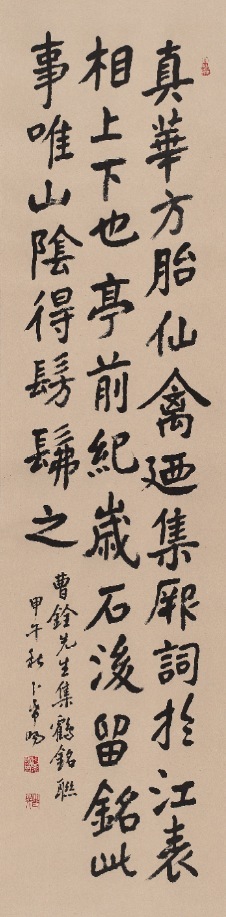 真華方胎仙禽廼集厥詞於江表
相上下也亭前紀歲石後留銘此
事唯山陰得髣髴之
曹銓先生集鶴銘聯
甲午秋卜希暘